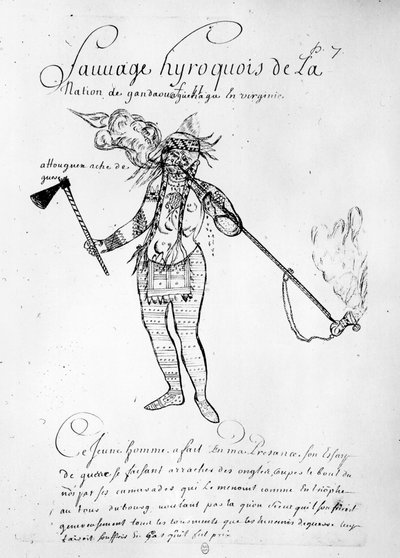 p. 7
Sauuage hyroquois de La
Nation de gandaouaguehaga En virginie.
attouguen ache de
guerre
Ce Jeune homme a fait En ma Presance son Essay
de guerre se faisant arracher des ongles, Coupes le bout du
nés par ses camarades qui le menoit comme En triomphe
au tour du bourg voulant par la quon vicut quil souffriroit
genereusement tous les tourments que les Ennemis
faisoit souffrir sil Estoit pris